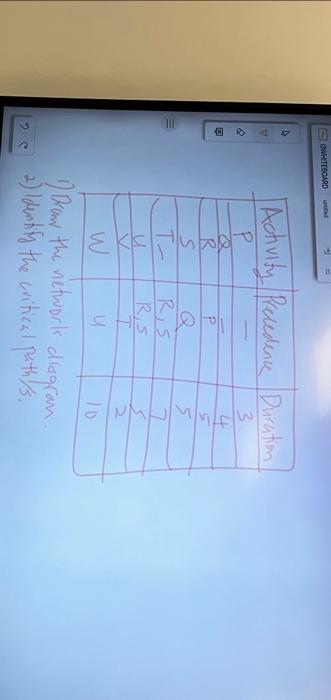 WHITEBOARD
Activity Precedence Duration
P - 3
Q - 4
R P 5
S Q 5
T R, S 7
U R, S 5
V T 2
W U 10
1) Draw the network diagram.
2) Identify the critical path/s.